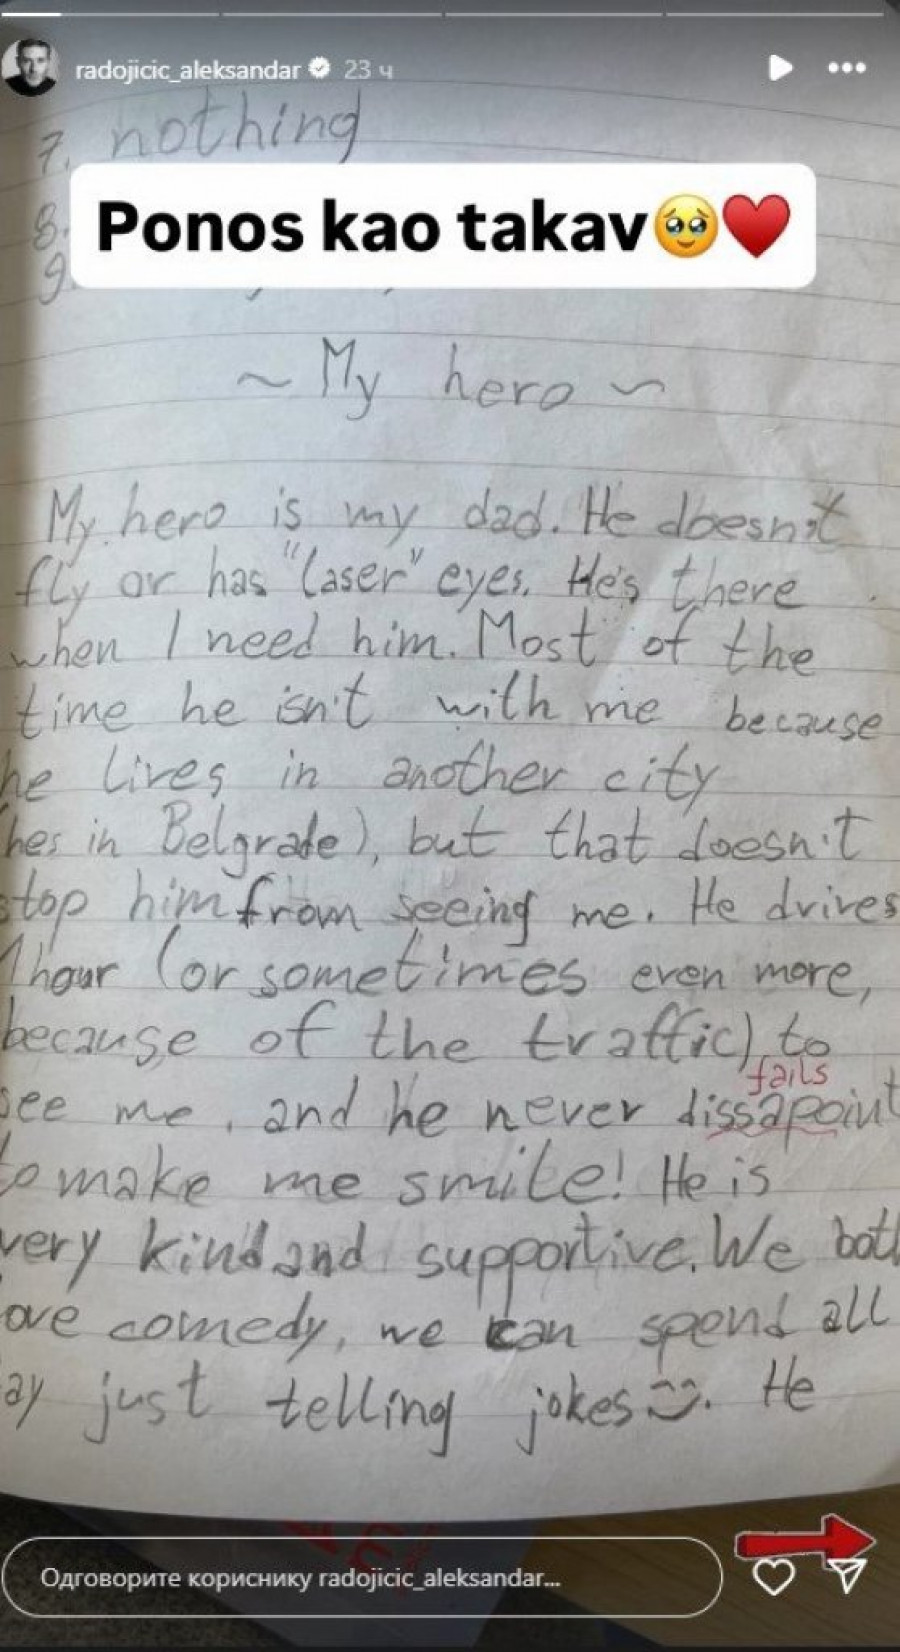 radojicic_aleksandar 23 ч
7. nothing
Ponos kao takav🥹❤️
8.
9.
~ My hero ~
My hero is my dad. He doesn't
fly or has "laser" eyes. He's there
when I need him. Most of the
time he isn't with me because
he lives in another city
(hes in Belgrade), but that doesn't
stop him from seeing me. He drives
1 hour (or sometimes even more,
because of the traffic) to
fails
see me, and he never dissapoint
to make me smile! He is
very kind and supportive. We both
love comedy, we can spend all
day just telling jokes. He
Одговорите кориснику radojicic_aleksandar...